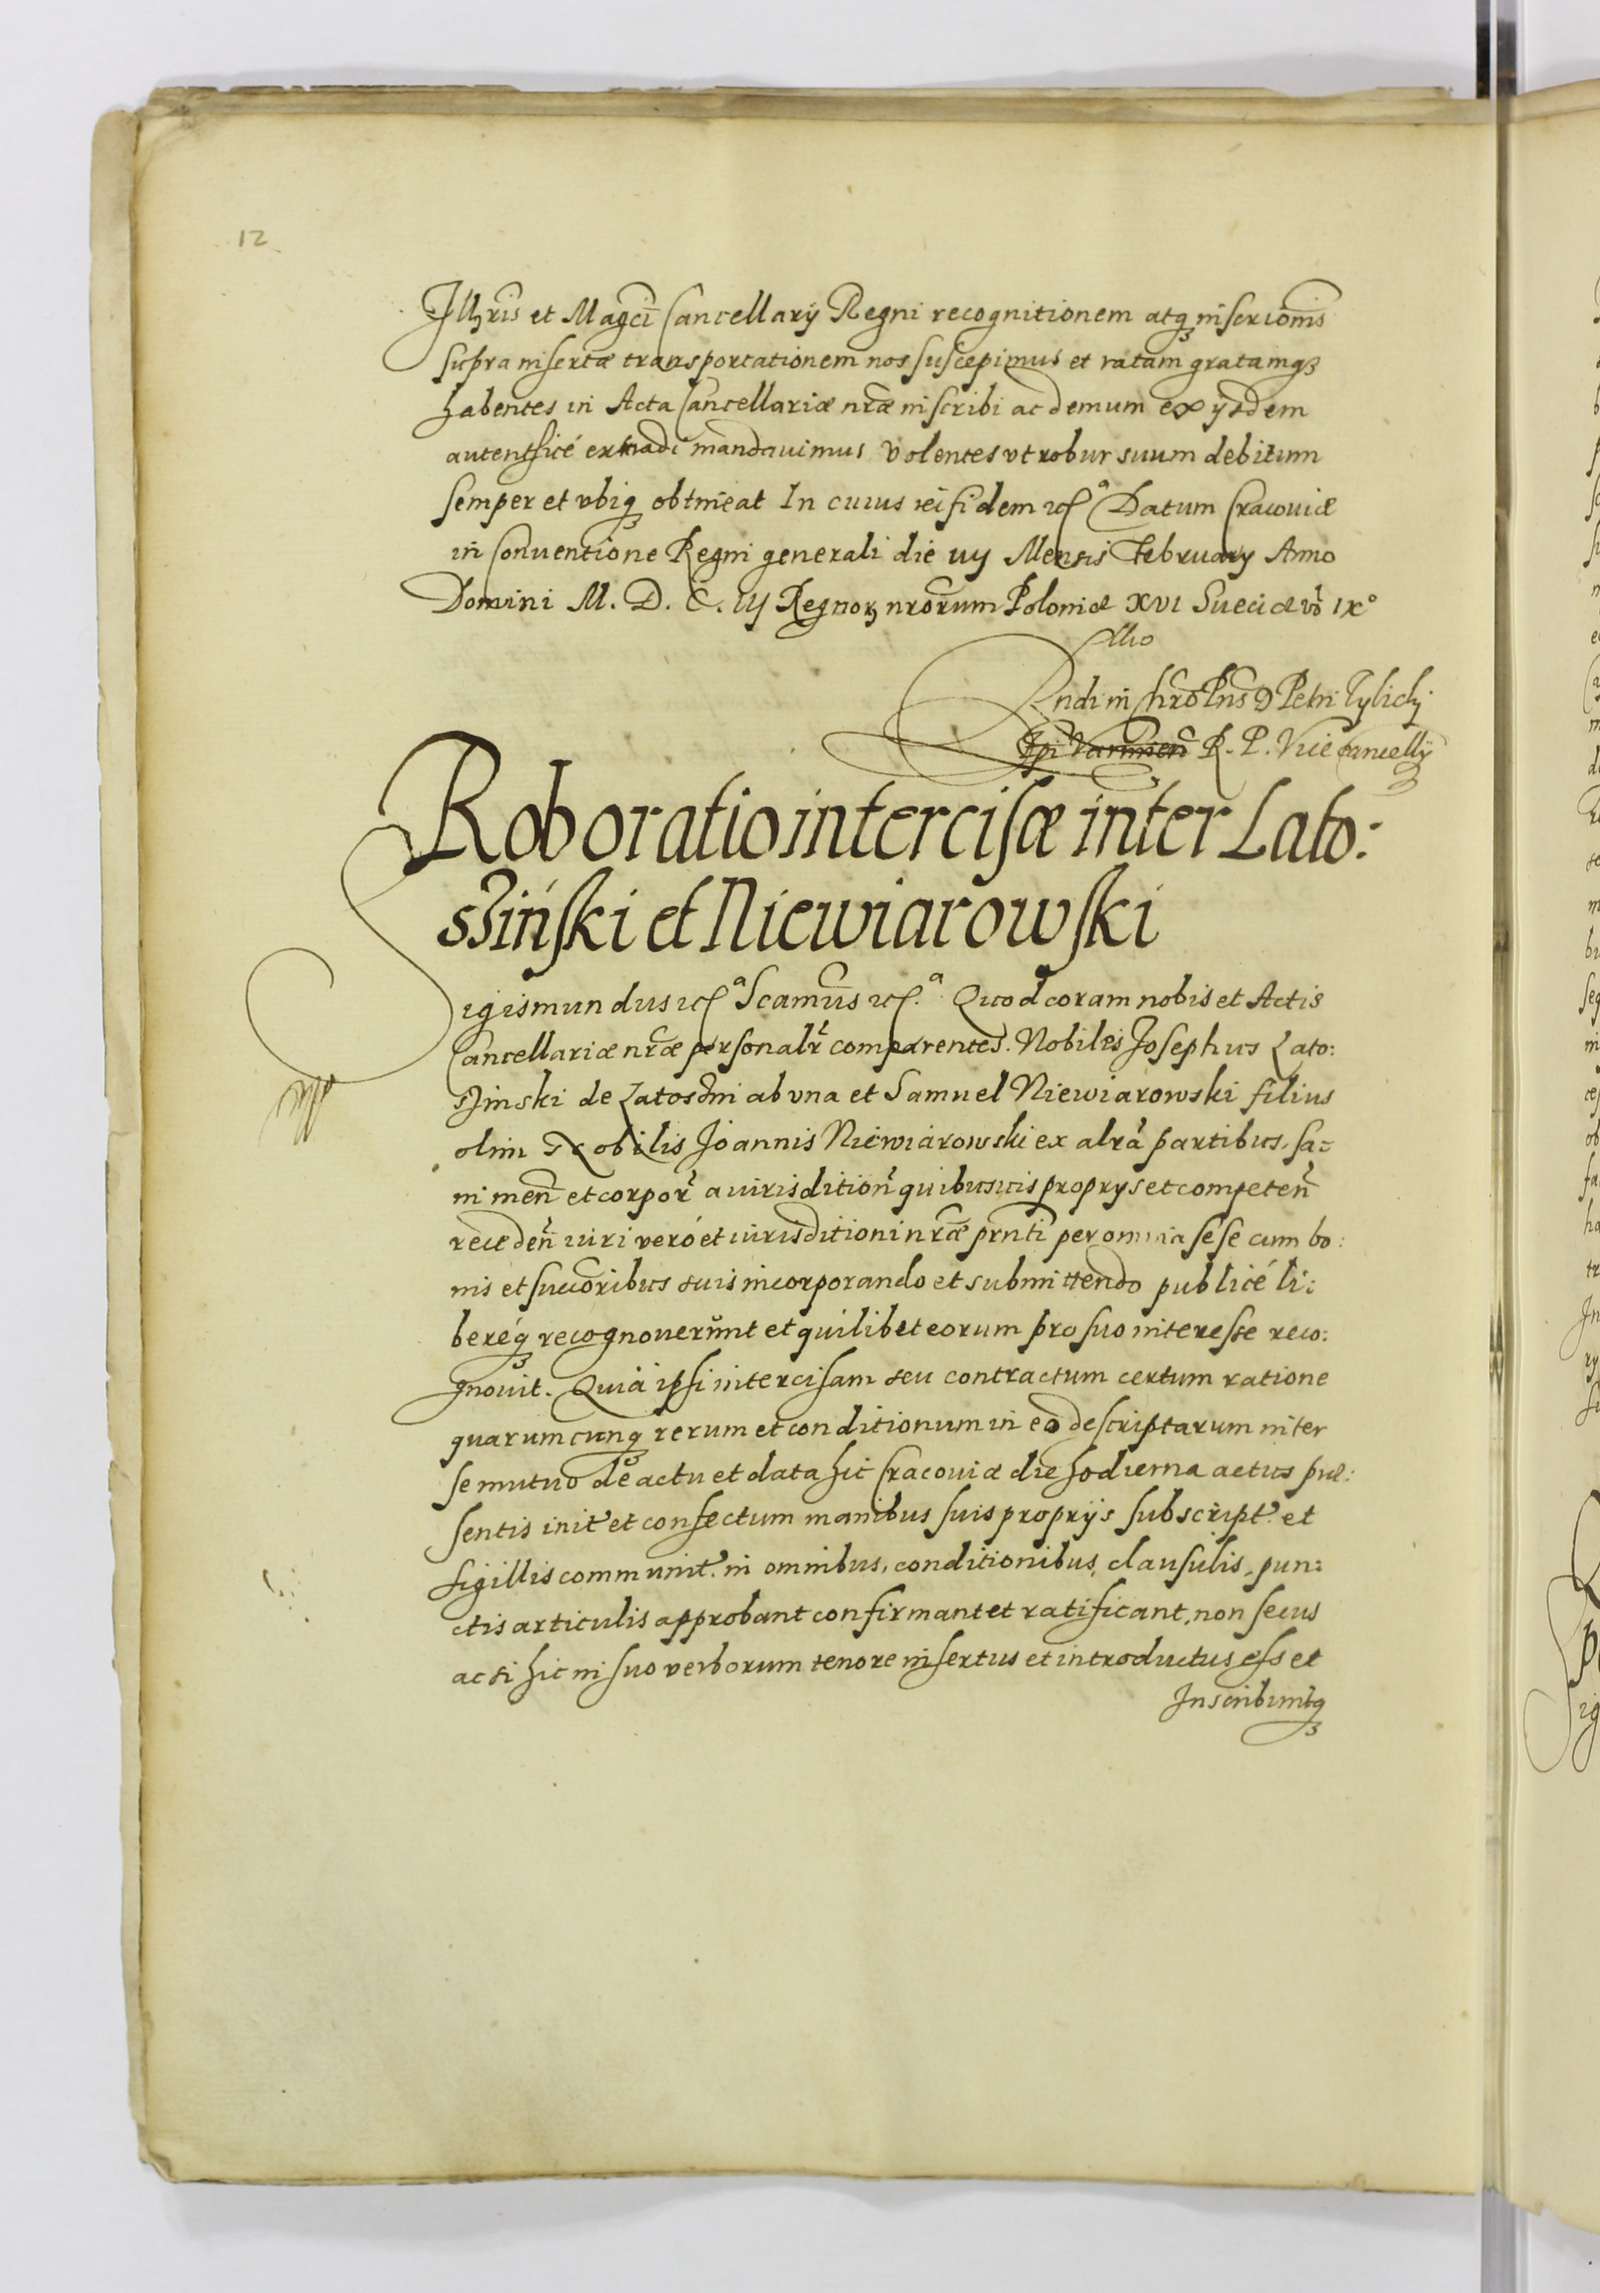 12
Illris et Magci Cancellarij Regni recognitionem atq inscrionis
supra insertæ transportationem nos suscepimus et ratam gratamq
habentes in Acta Cancellariæ nræ inscribi ac demum ex ijsdem
autenticé extradi mandauimus volentes vt robur suum debitum
semper et vbiq obtineat In cuius rei fidem etc Datum Cracouiæ
in Conuentione Regni generali die Mensis February Anno
Domini M. D. C. iij Regnor nrorum Poloniæ XVI Sueciæ vo IXo
Rndi in Chro Pris D Petri Tylicki
Epi Varmien R. P. Vicecancellij
Roboratio intercisæ inter Lato:
szinski et Niewiarowski
Sigismundus etc Scamus etc. Quod coram nobis et Actis
Cancellariæ nræ personalr comparentes. Nobiles Josephus Lato:
szinski de Latoszni ab vna et Samuel Niewiarowski filius
olim Nobilis Joannis Niewiarowski ex alra partibus, sa-
ni men et corpor a iurisdition quibusuis proprys et competen
receden iuri veró et iurisditioni nræ prnti per omnia sese cum bo:
nis et succoribus suis incorporando et submittendo publicé li:
beréq recognouerunt et quilibet eorum pro suo interesse reco:
gnouit. Quia ipsi intercisam seu contractum certum ratione
quarumcunq rerum et conditionum in eo descriptarum inter
se mutuo de actu et data hic Cracouiæ die hodierna actus præ:
sentis init et confectum manibus suis proprijs subscript et
sigillis communit. in omnibus, conditionibus, clausulis, pun:
ctis articulis approbant confirmant et ratificant, non secus
ac si hic in suo verborum tenore insertus et introductus esset
Inscribuntq